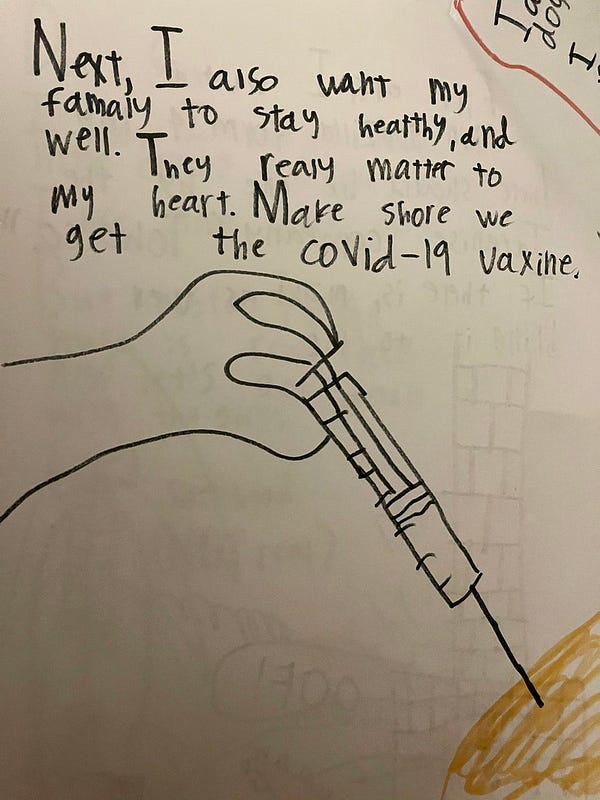 Next, I also want my
famaly to stay healthy, and
well. They realy matter to
my heart. Make shore we
get the covid-19 vaxine.
I a
dog
I
OOF!